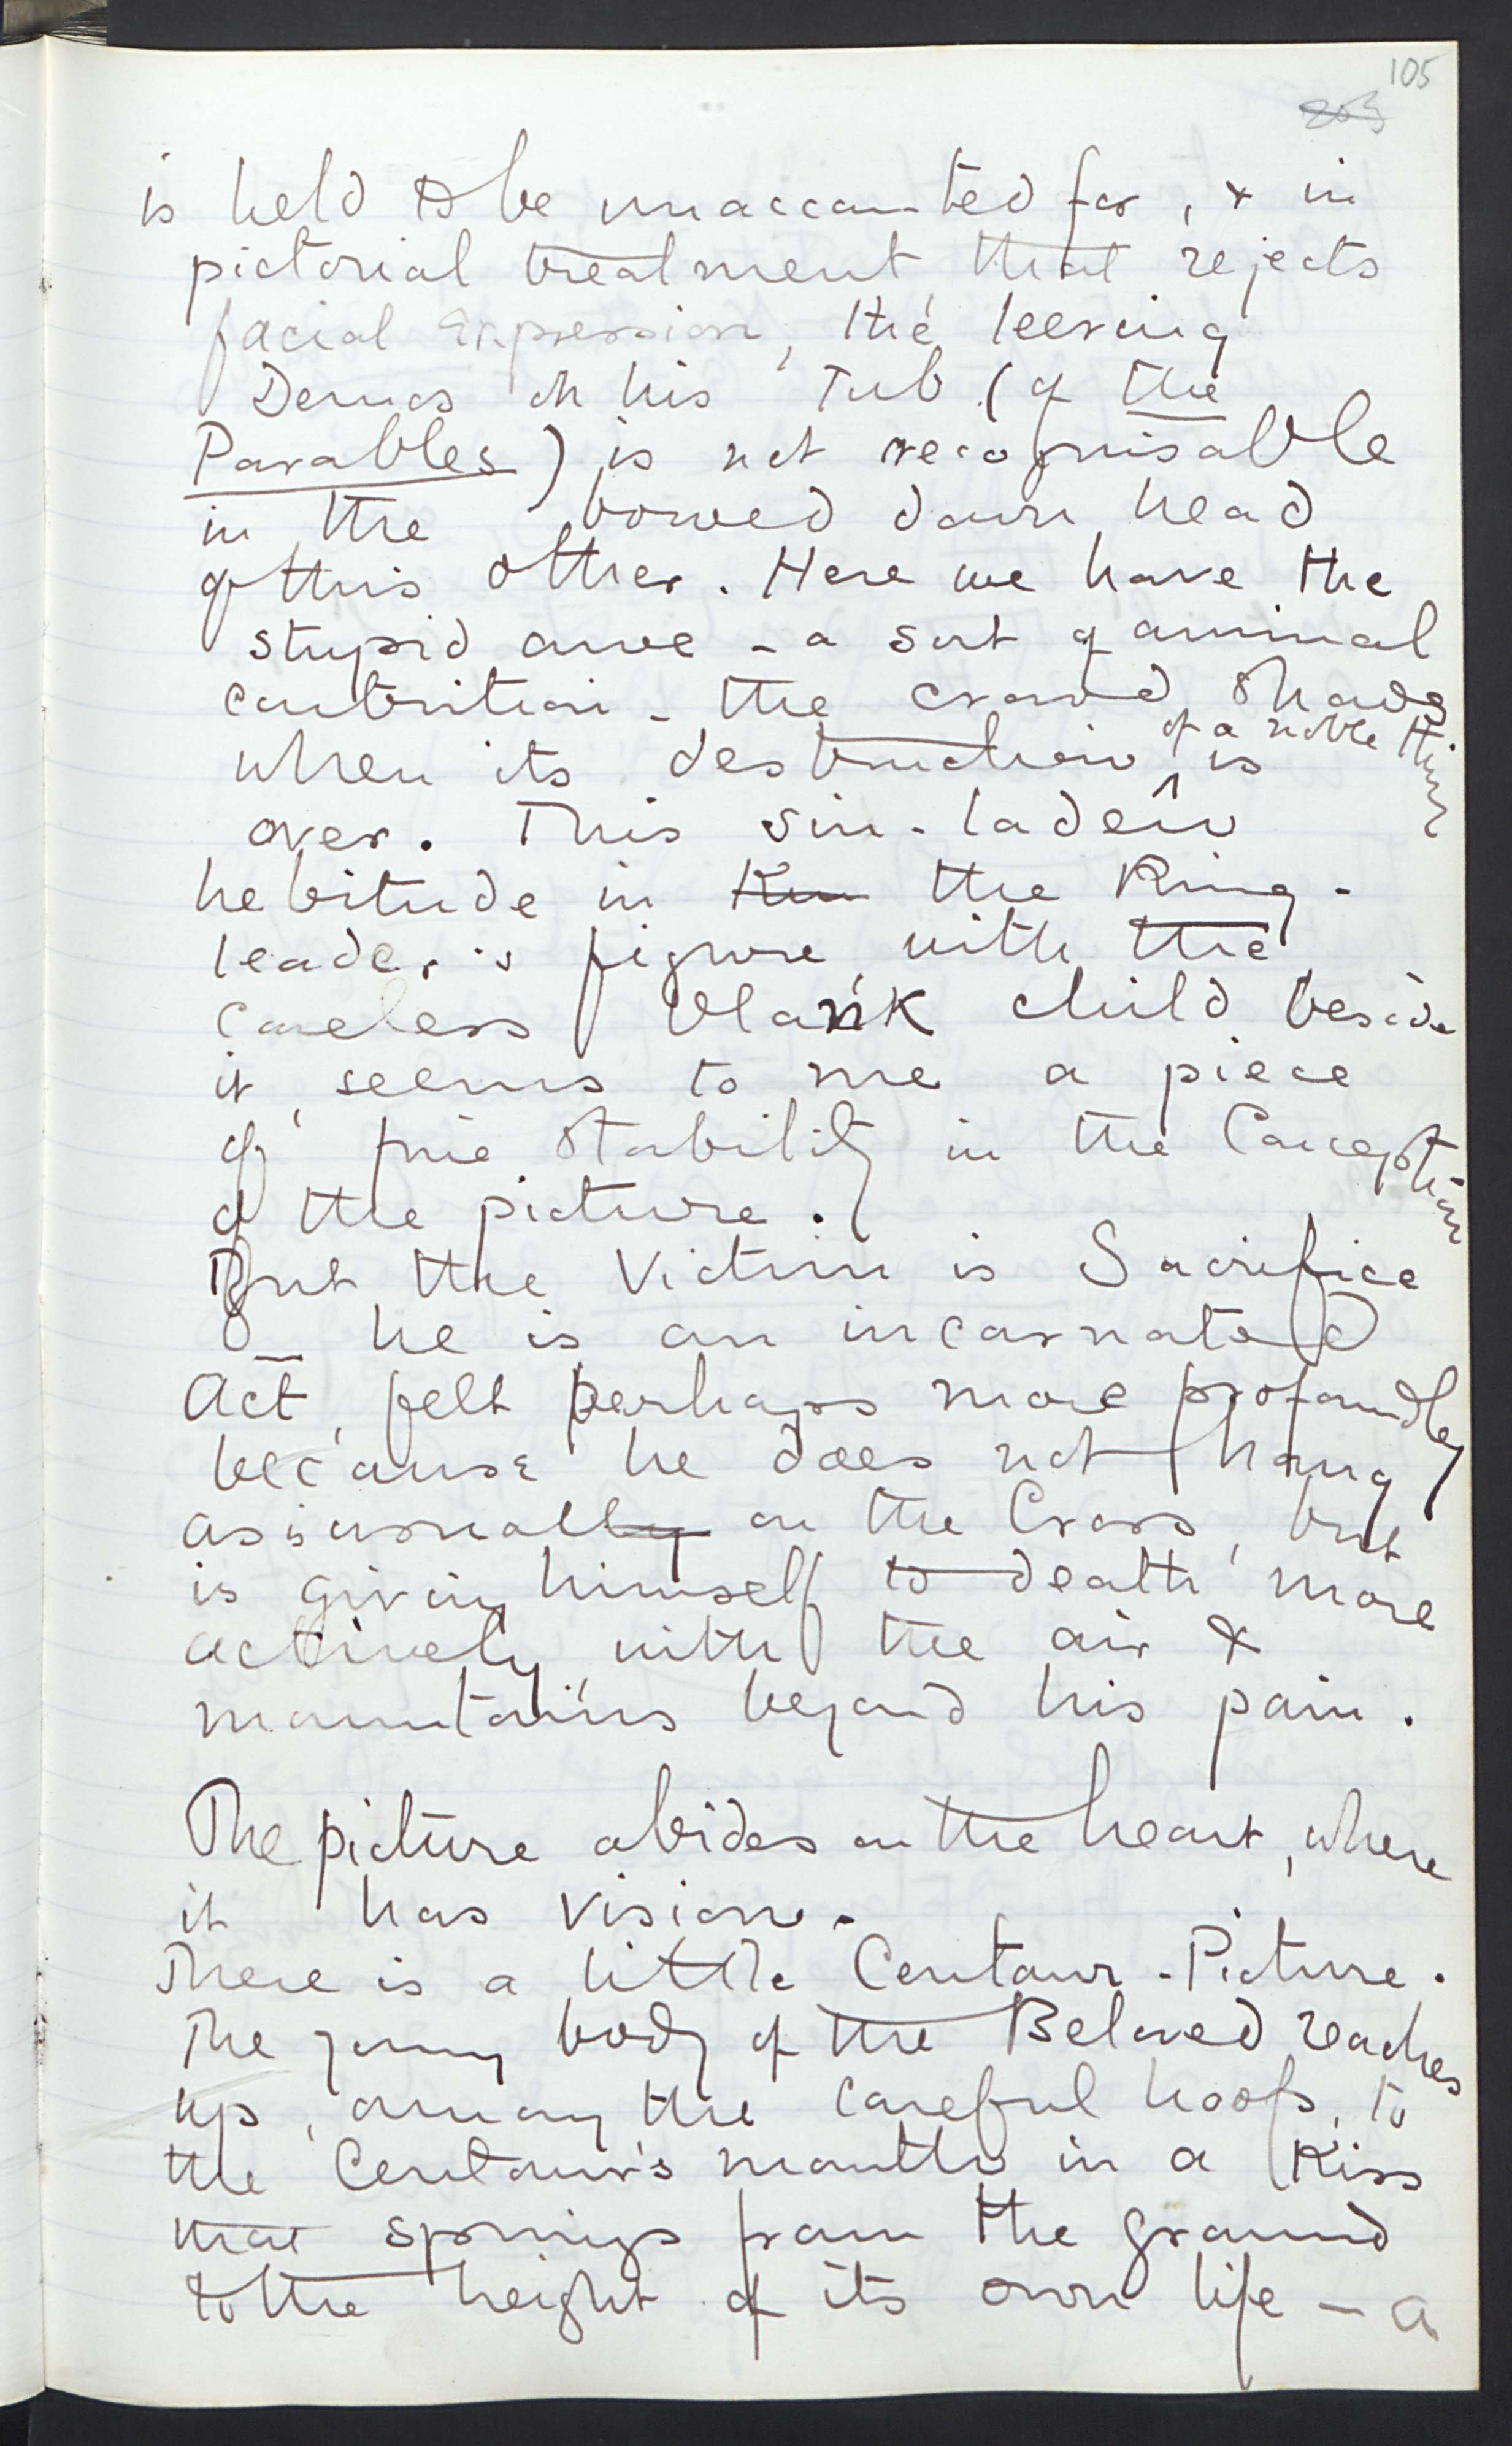 105
is held to be unaccounted for, & in
pictorial treatment that rejects
facial expression, the leering
Demos on his Tub (of the
Parables) is not recognisable
in the bowed down head
of this other. Here we have the
stupid awe - a sort of animal
contrition - the crowd shows
when its destruction of a noble thing is
over. This sin-laden
hebitude in the Ring-
leader's figure, with the
careless blank child beside
it, seems to me a piece
of fine stability in the Conception
of the picture.
But the Victim is Sacrifice
- he is an incarnated
Act, felt perhaps more profoundly
because he does not hang
as is usual on the Cross, but
is giving himself to death more
actively, with the air &
mountains beyond his pain.
The picture abides on the heart, where
it has vision.
There is a little Centaur-Picture.
The young body of the Beloved reaches
up, among the careful hoofs, to
the Centaur's mouth in a Kiss
that springs from the ground
to the height of its own life - a